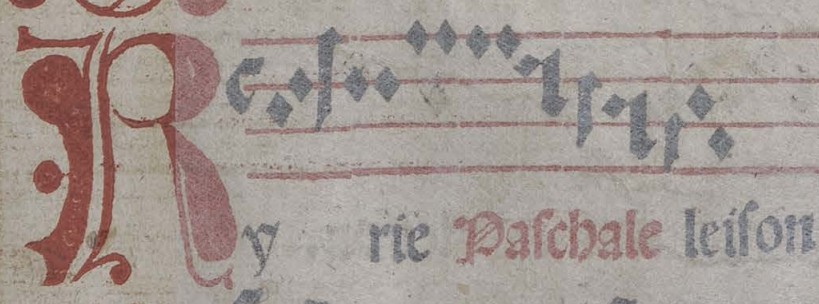 Ky rie Paſchale leiſon